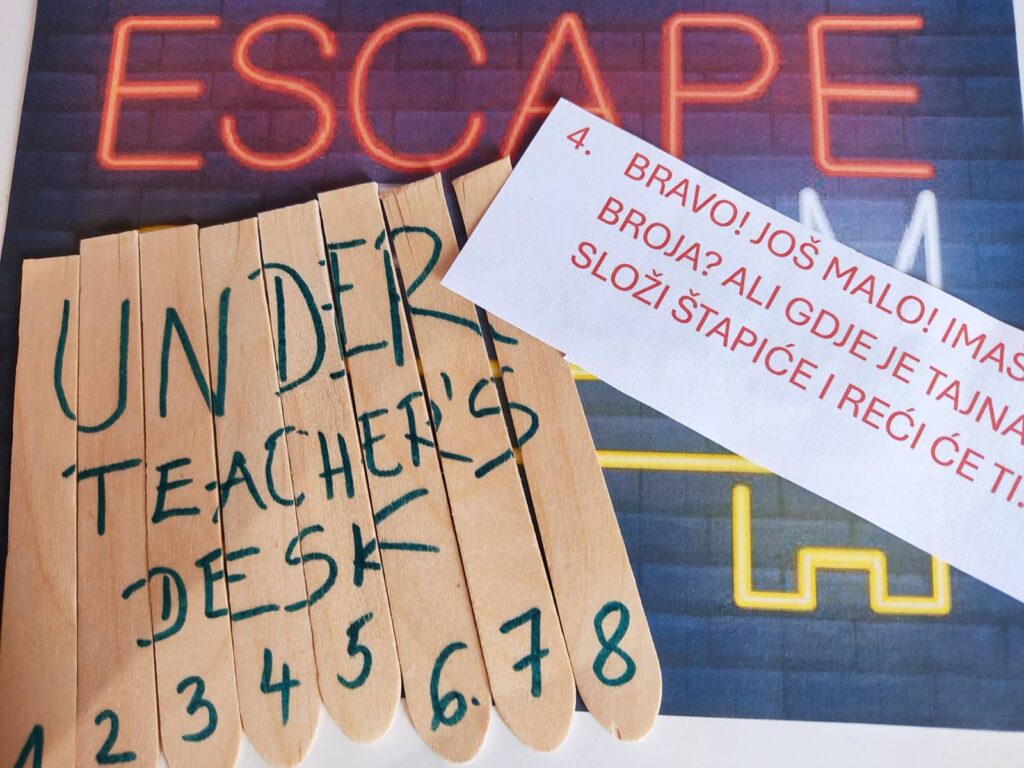 ESCAPE
M
4. BRAVO! JOŠ MALO! IMAŠ
BROJA? ALI GDJE JE TAJNA
SLOŽI ŠTAPIĆE I REĆI ĆE TI.
UNDER
TEACHER'S
DESK
1 2 3 4 5 6. 7 8